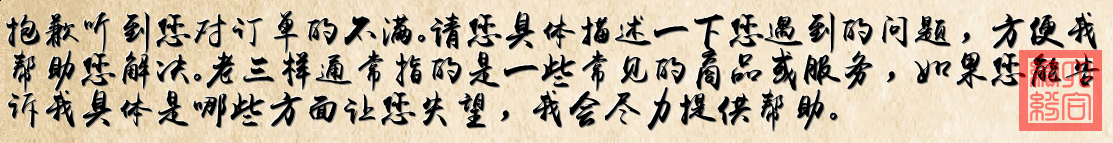 抱歉听到您对订单的不满。请您具体描述一下您遇到的问题，方便我
帮助您解决。老三样通常指的是一些常见的商品或服务，如果您能告
诉我具体是哪些方面让您失望，我会尽力提供帮助。